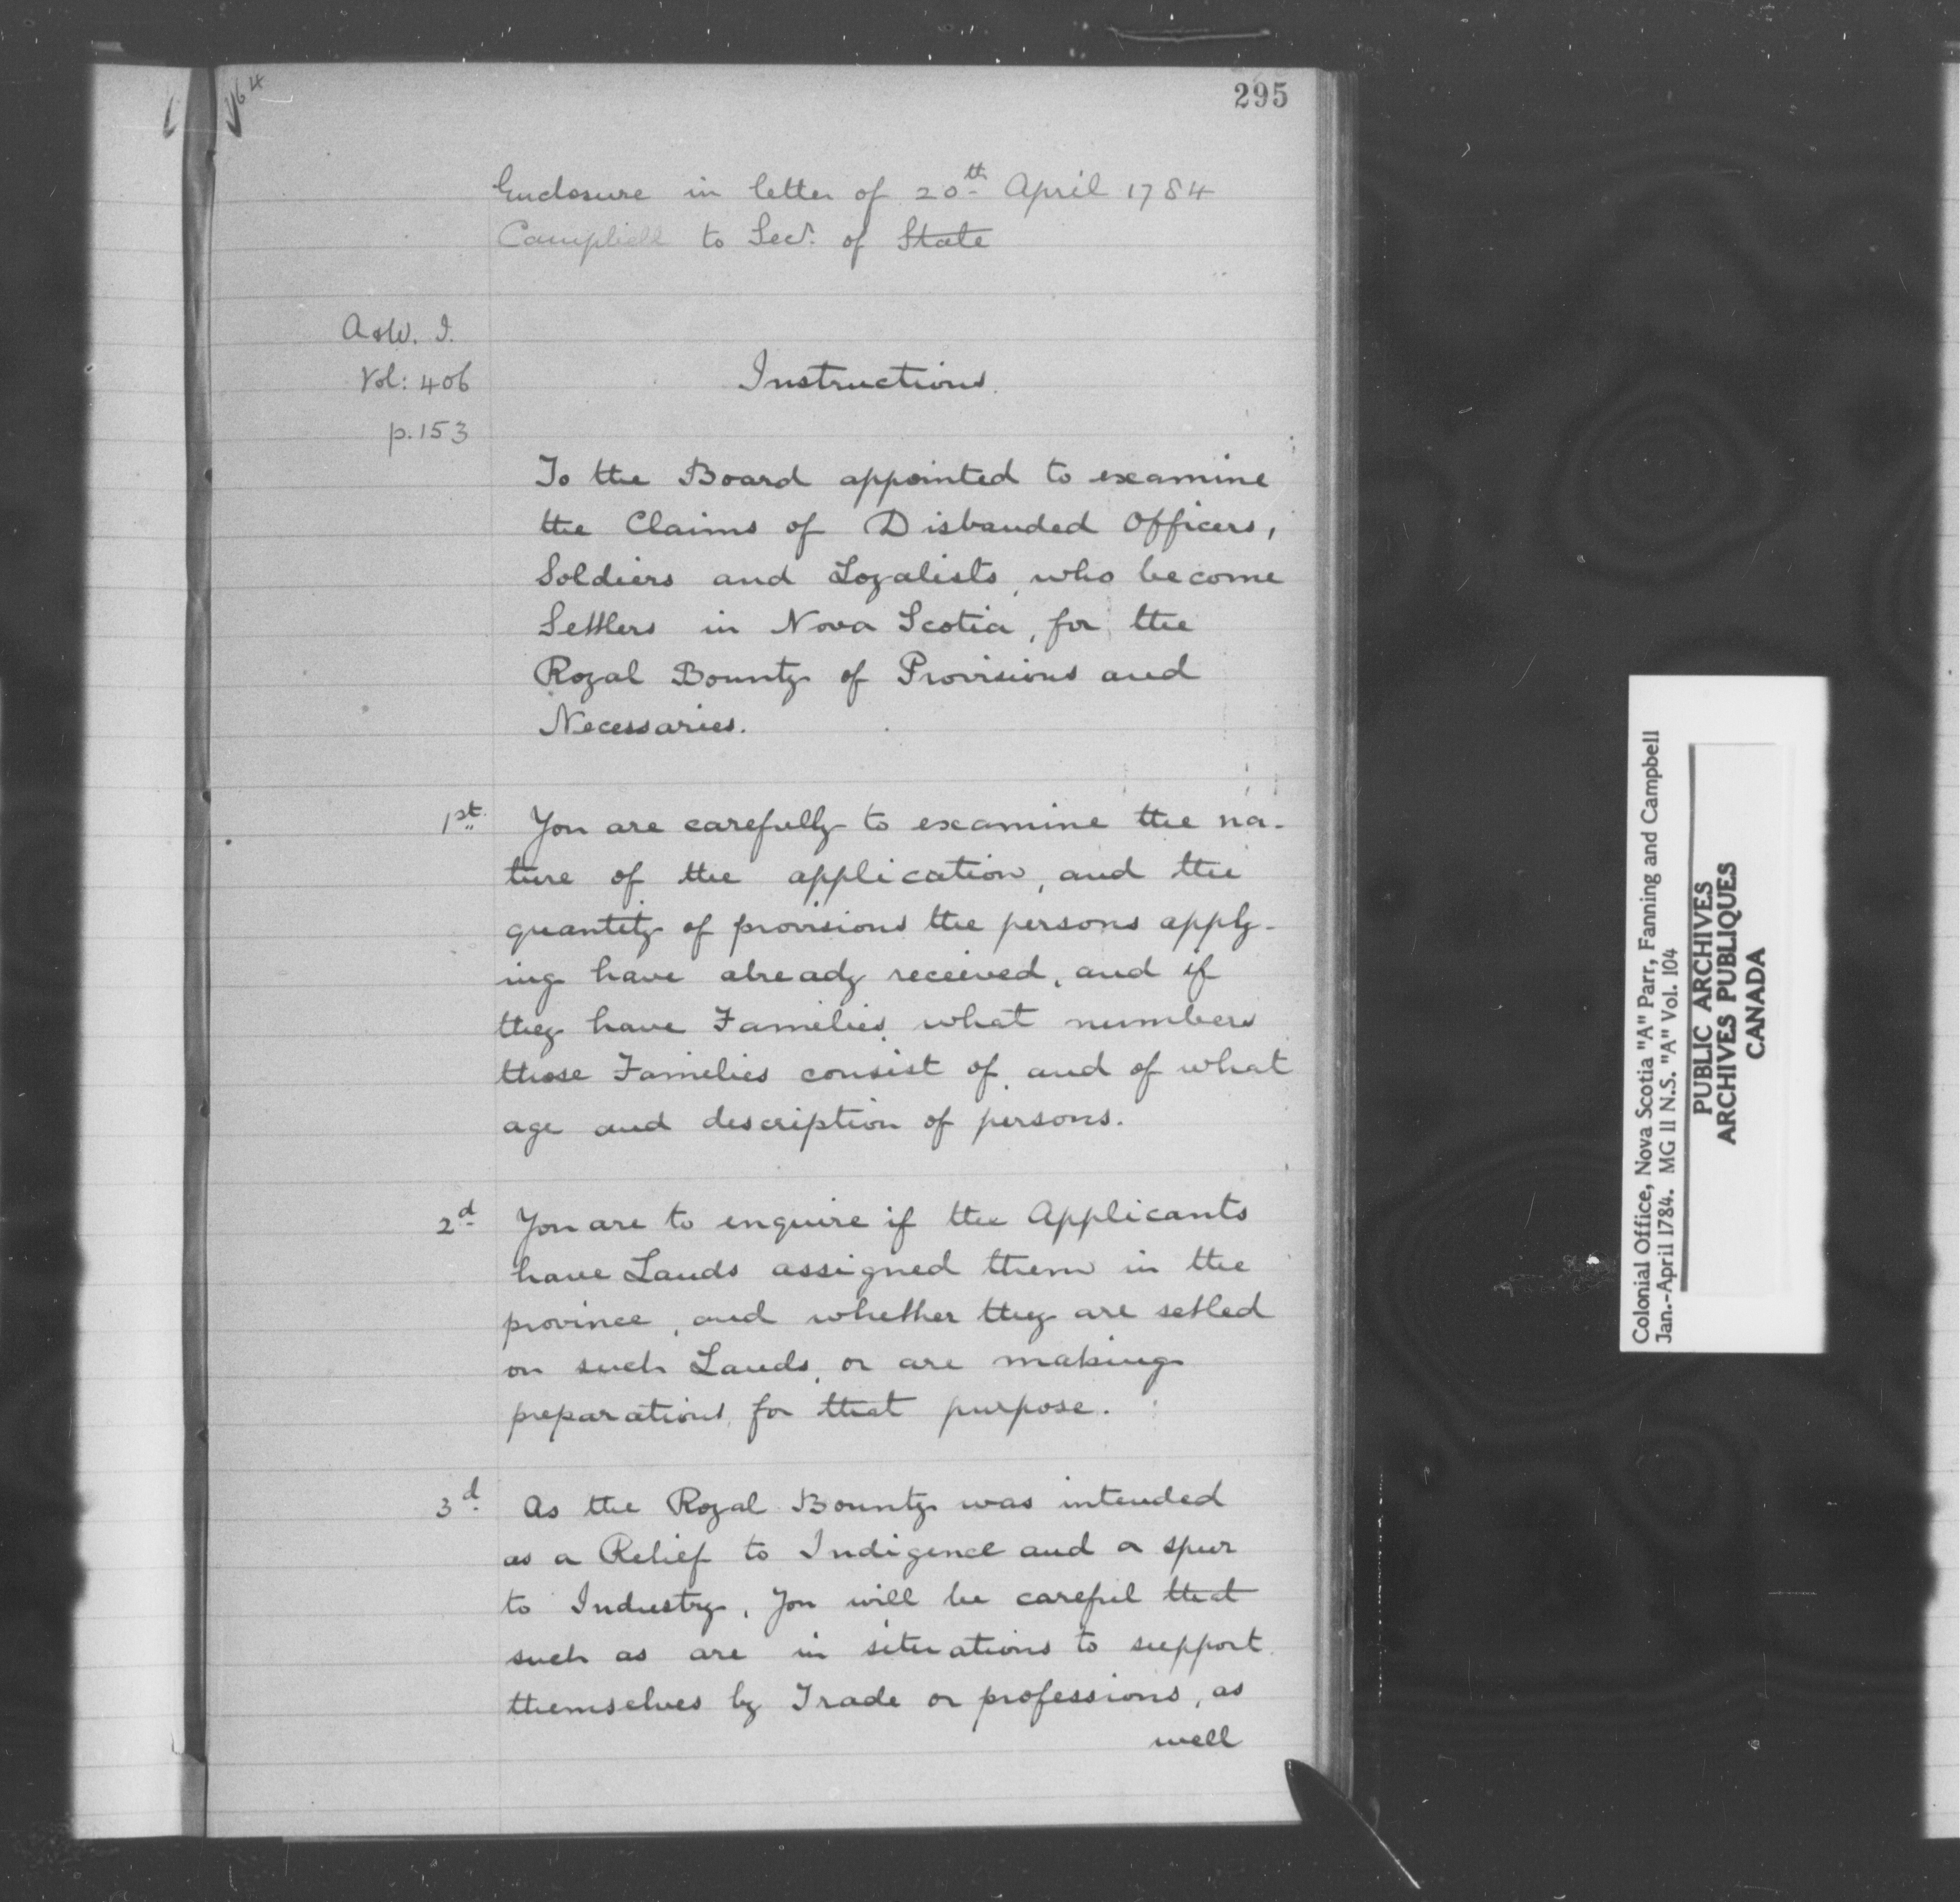 295
64
Enclosure in letter of 20th April 1784
Campbell to Secy. of State
A & W. I.
Vol: 406
p. 153
Instructions.
To the Board appointed to examine
the Claims of Disbanded Officers,
Soldiers and Loyalists, who become
Settlers in Nova Scotia, for the
Royal Bounty of Provisions and
Necessaries.
1st. You are carefully to examine the na-
ture of the application, and the
quantity of provisions the persons apply-
ing have already received, and if
they have Families, what numbers
those Families consist of, and of what
age and description of persons.
2d You are to enquire if the Applicants
have Lands assigned them in the
province, and whether they are setled
on such Lands, or are making
preparations, for that purpose.
3d. As the Royal Bounty was intended
as a Relief to Indigence and a spur
to Industry, You will be careful that
such as are in situations to support
themselves by Trade or professions, as
well
Colonial Office, Nova Scotia "A" Parr, Fanning and Campbell
Jan.-April 1784. MG 11 N.S. "A" Vol. 104
PUBLIC ARCHIVES
ARCHIVES PUBLIQUES
CANADA